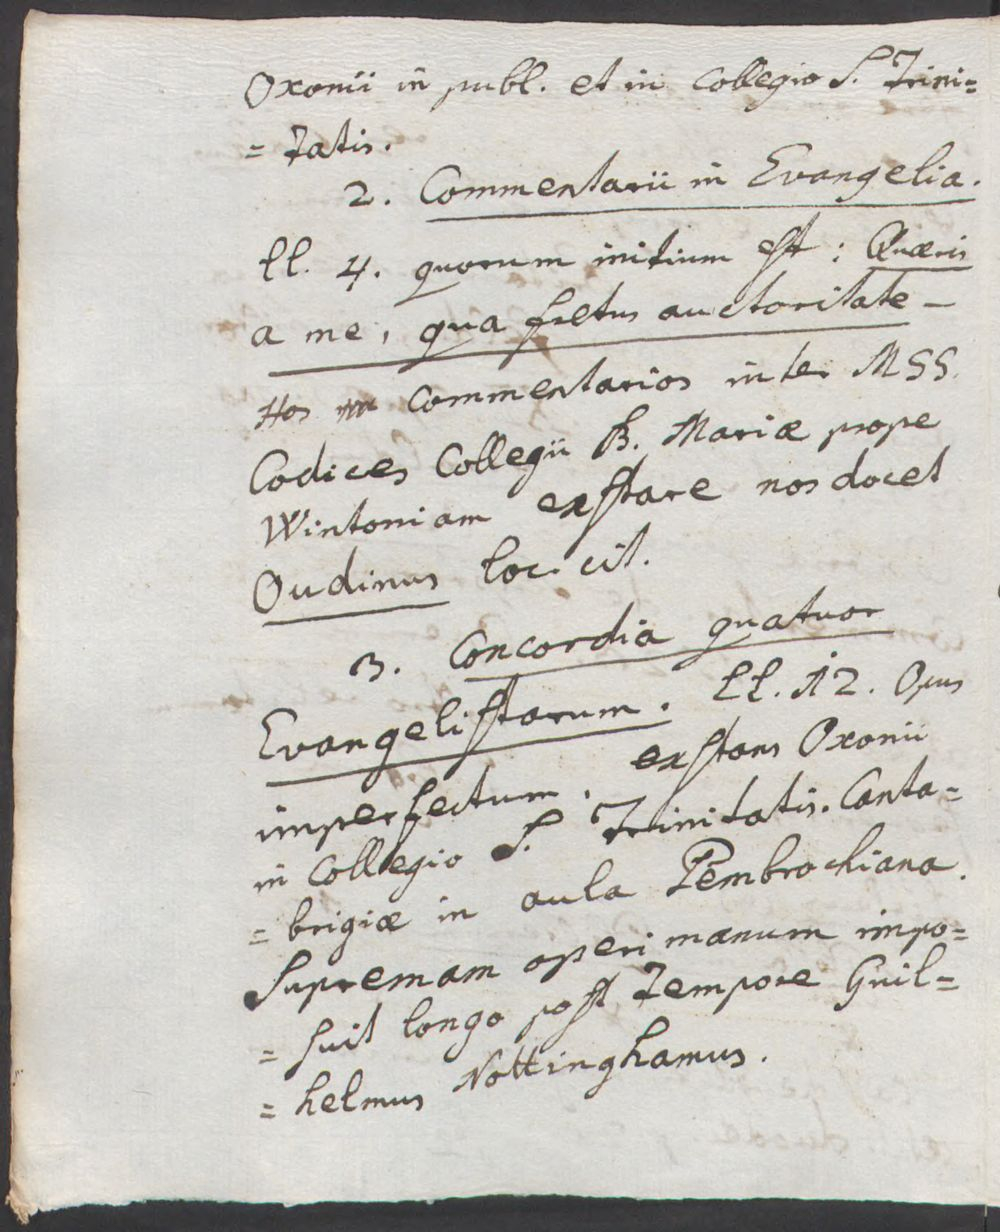 Oxonii in publ. et in Collegio S. Trini=
= tatis.
2. Commentarii in Evangelia.
ll. 4. quorum initium est: Quæris
a me, qua fretus auctoritate –
Hos Commentarios inter MSS.
Codices Collegii B. Mariæ prope
Wintoniam exstare nos docet
Oudinus loc. cit.
3. Concordia quatuor
Evangelistarum. LL. 12. Opus
imperfectum. exstans Oxonii
in Collegio S. Trinitatis. Canta=
= brigiæ in aula Pembrochiana.
Supremam operi manum impo=
= suit longo post tempore Guil=
= helmus Nottinghamus.